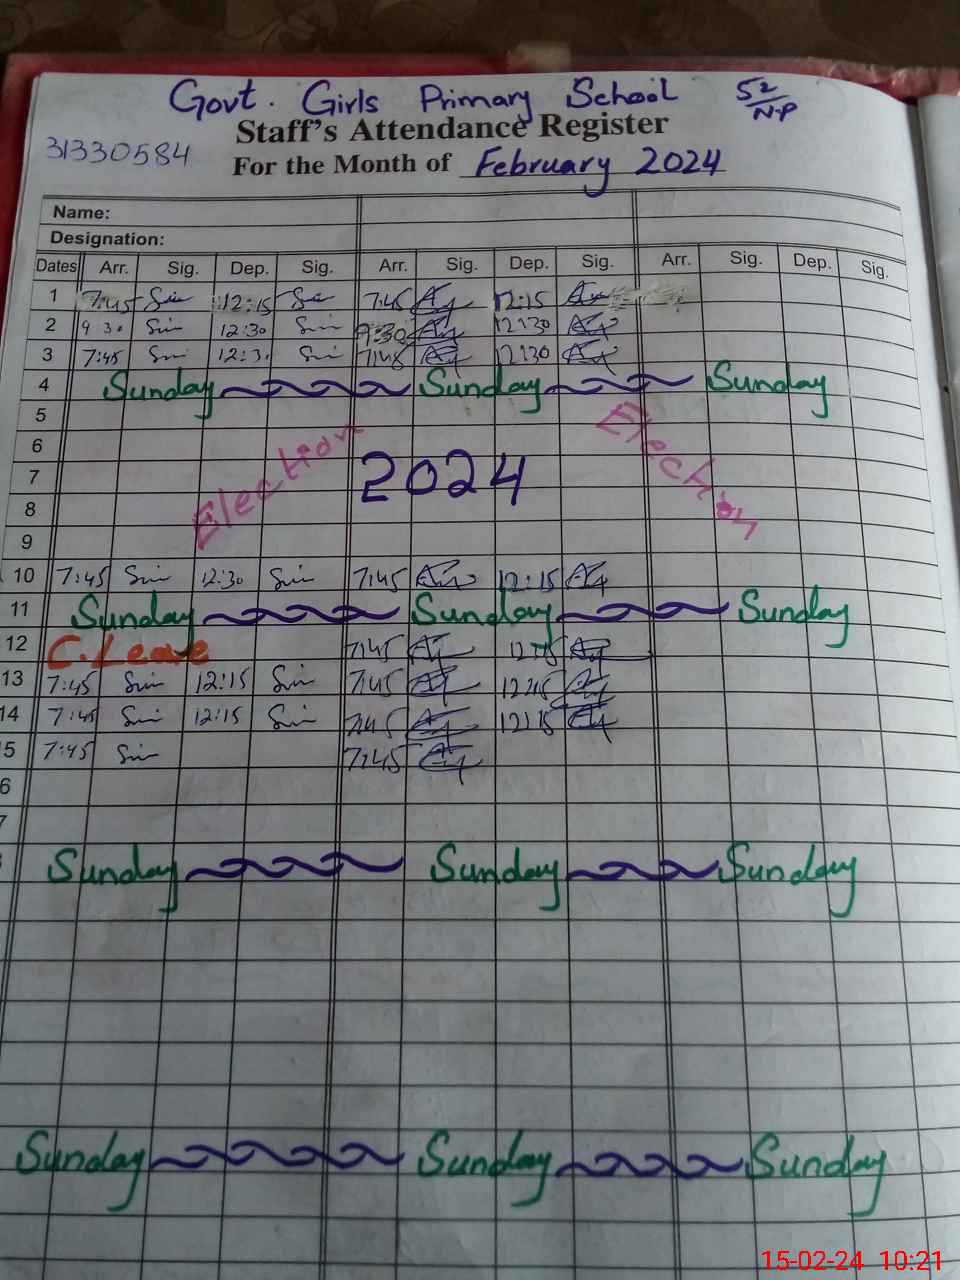 Govt. Girls Primary School 52/N-P
Staff's Attendance Register
31330584
For the Month of February 2024
Name:
Designation:
Dates Arr. Sig. Dep. Sig. Arr. Sig. Dep. Sig. Arr. Sig. Dep. Sig.
1 7:45 12:15 7:45 12:15
2 9 30 12:30 9:30 12:30
3 7:45 12:3 7:45 12:30
4 Sunday Sunday Sunday
5
6
Election Election
7 2024
8
9
10 7:45 12:30 7:45 12:15
11 Sunday Sunday Sunday
12 C.Leave 7:45 12:15
13 7:45 12:15 7:45 12:15
14 7:45 12:15 7:45 12:15
5 7:45 7:45
6
7
Sunday Sunday Sunday
Sunday Sunday Sunday
15-02-24 10:21